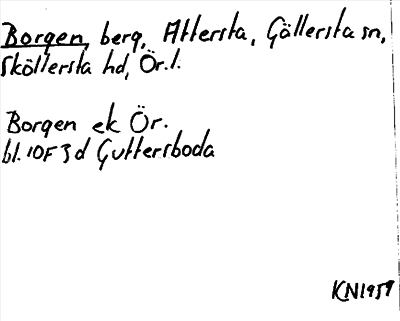 Borgen, berg, Attersta, Gällersta sn,
Sköllersta hd, Ör.l.
Borgen ek Ör.
bl. 10F 3d Guttersboda
KN1959